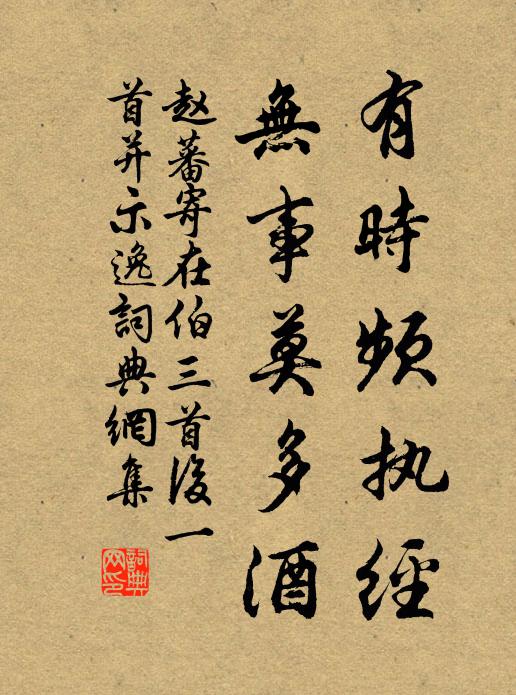 有時頻执經
無事莫多酒
赵蕃寄在伯三首後一
首并示逸詞典網集
詞典网印